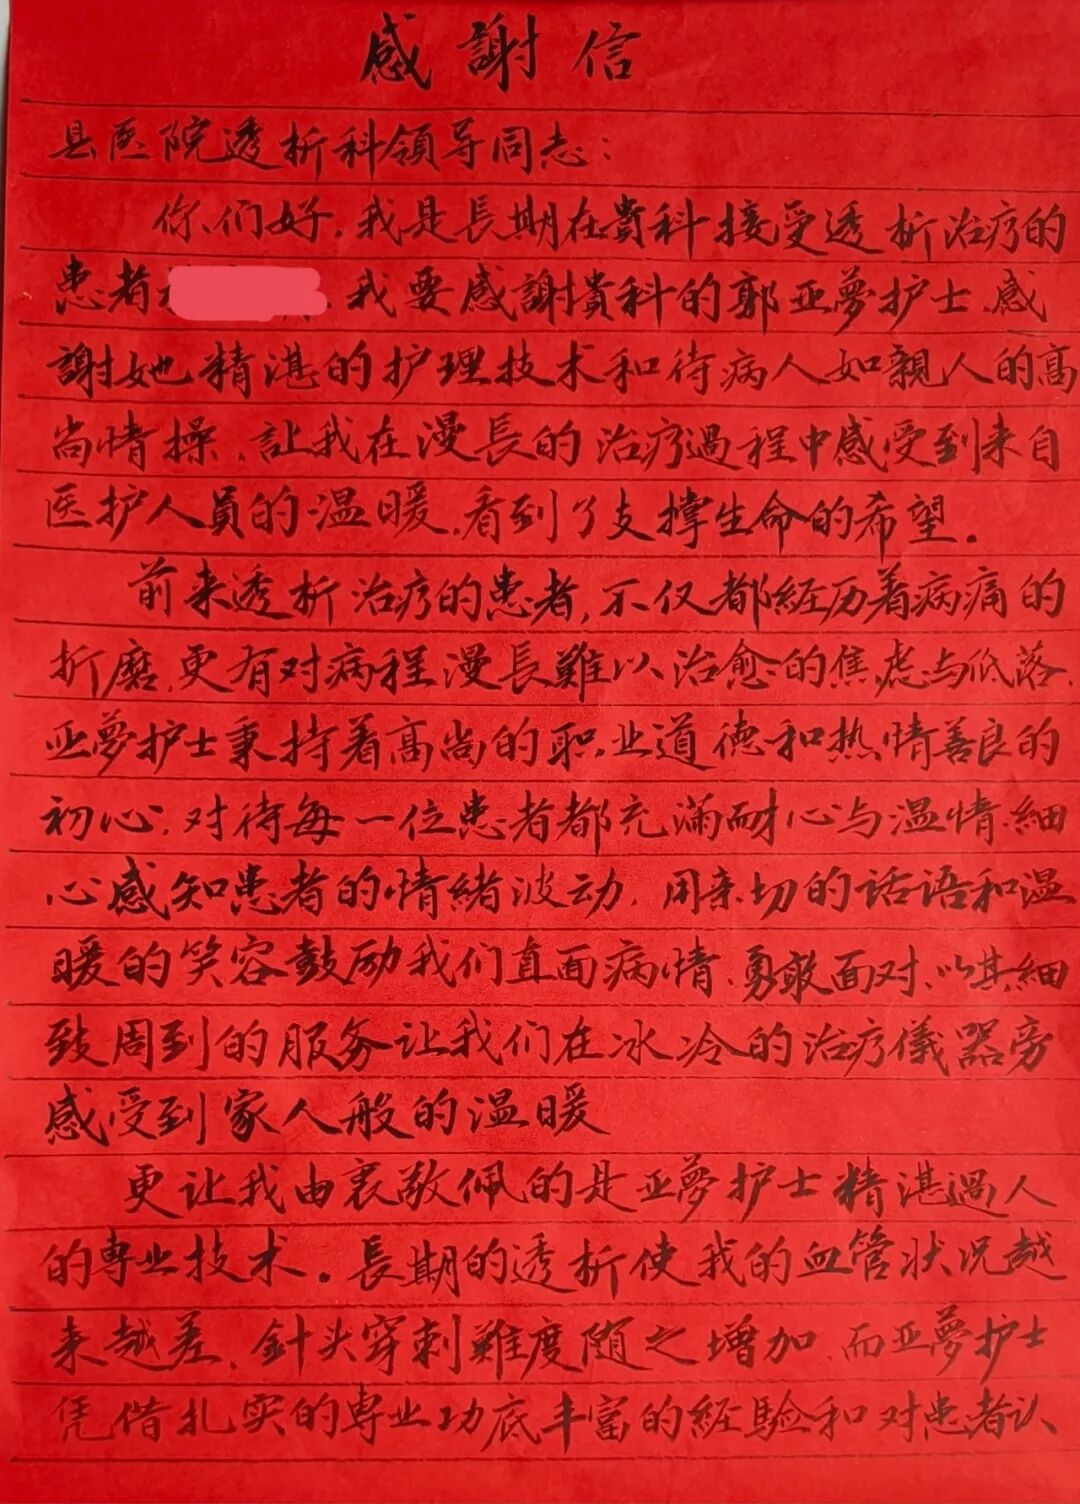 感謝信
县医院透析科领导同志：
你们好，我是長期在貴科接受透析治疗的
患者，我要感謝貴科的郭亚夢护士，感
謝她精湛的护理技术和待病人如親人的高
尚情操，讓我在漫長的治疗過程中感受到来自
医护人員的温暖，看到了支撑生命的希望。
前来透析治疗的患者，不仅都経历着病痛的
折磨，更有对病程漫長難以治愈的焦虑与低落，
亚夢护士秉持着高尚的职业道德和热情善良的
初心，对待每一位患者都充满耐心与温情，細
心感知患者的情緒波动，用亲切的话语和温
暖的笑容鼓励我们直面病情，勇敢面对，以其細
致周到的服务让我们在冰冷的治疗儀器旁
感受到家人般的温暖
更让我由衷敬佩的是亚夢护士精湛過人
的専业技术。長期的透析使我的血管状况越
来越差，針头穿刺難度随之增加，而亚夢护士
凭借扎实的専业功底丰富的経验和对患者认